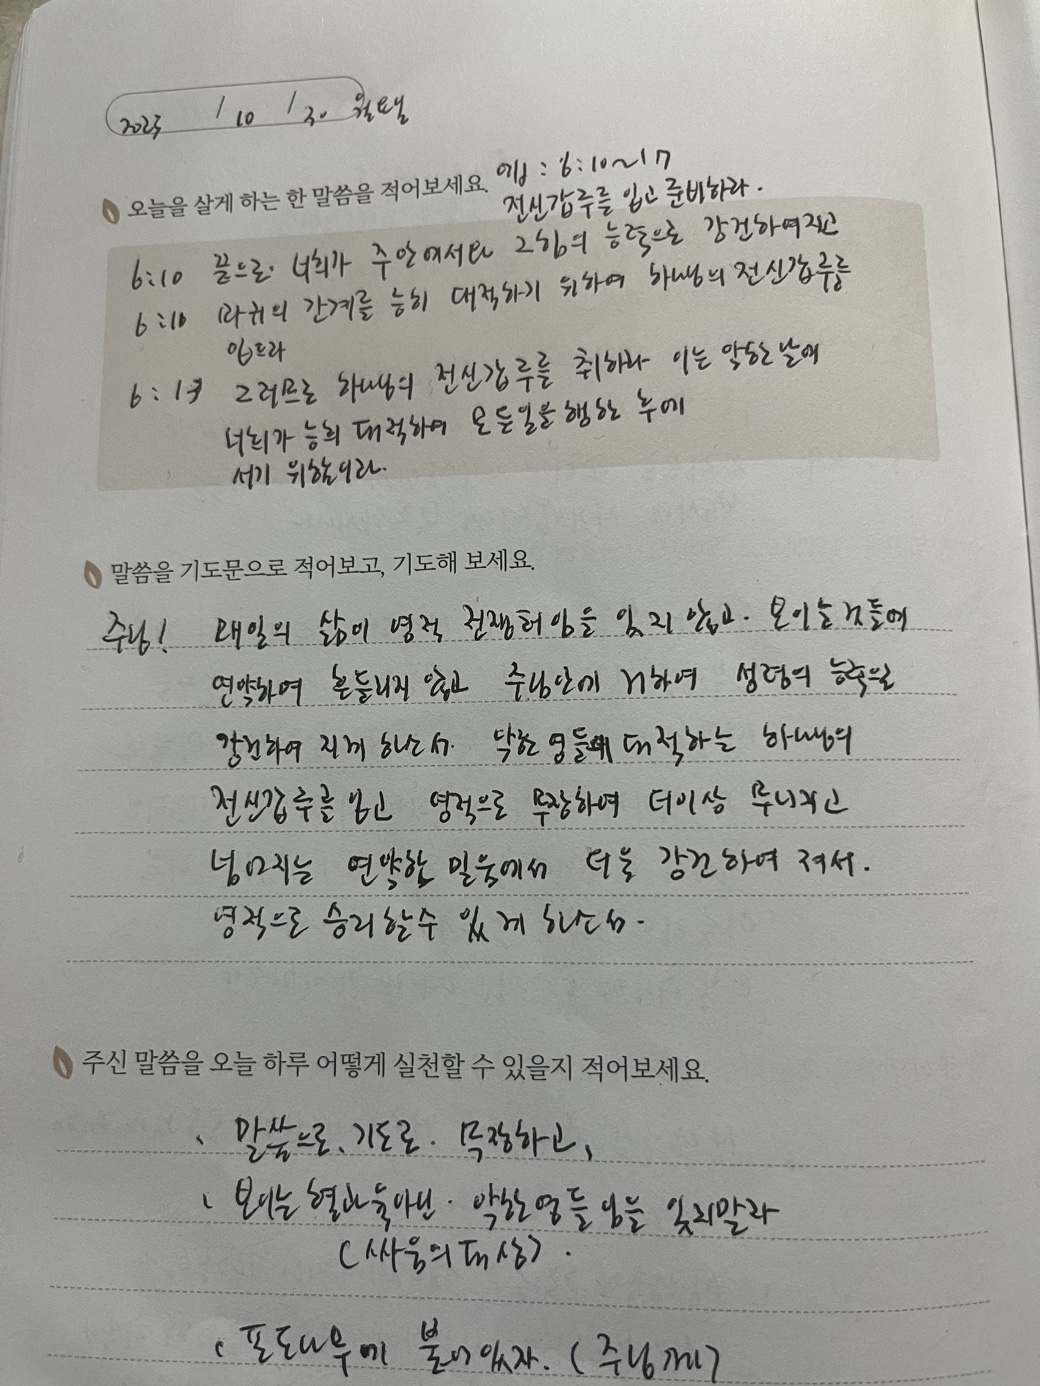 2025 / 10 / 20 월요일
엡 : 6:10~17
오늘을 살게 하는 한 말씀을 적어보세요.
전신갑주를 입고 준비하라.
6:10 끝으로 너희가 주안에서와 그힘의 능력으로 강건하여지고
6:10 마귀의 간계를 능히 대적하기 위하여 하나님의 전신갑주를
입으라
6:13 그러므로 하나님의 전신갑주를 취하라 이는 악한날에
너희가 능히 대적하여 모든일을 행한 후에
서기 위함이라.
말씀을 기도문으로 적어보고, 기도해 보세요.
주님! 매일의 삶이 영적 전쟁터임을 잊지 않고. 보이는것들에
연약하여 흔들리지 않고 주님안에 거하여 성령의 능력으로
강건하여 지게 하소서. 악한 영들에 대적하는 하나님의
전신갑주를 입고 영적으로 무장하여 더이상 무너지고
넘어지는 연약한 믿음에서 더욱 강건하여 져서.
영적으로 승리할수 있게 하소서.
주신 말씀을 오늘 하루 어떻게 실천할 수 있을지 적어보세요.
말씀으로, 기도로. 무장하고,
보이는 혈과육아닌. 악한영들임을 잊지말라
(싸움의 대상).
포도나무에 붙어있자. (주님께)